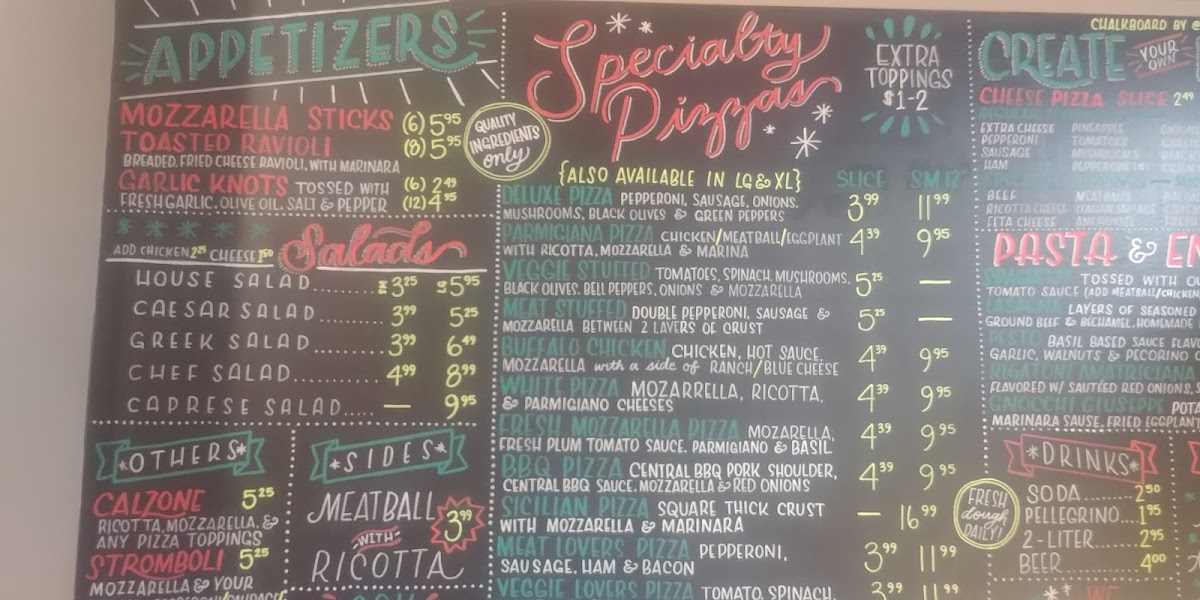 APPETIZERS
MOZZARELLA STICKS (6) 5.95
TOASTED RAVIOLI (8) 5.95
BREADED, FRIED CHEESE RAVIOLI, WITH MARINARA
GARLIC KNOTS TOSSED WITH (6) 2.49
FRESH GARLIC, OLIVE OIL, SALT & PEPPER (12) 4.95
QUALITY
INGREDIENTS
only
ADD CHICKEN 2.25 CHEESE 1.50
Salads
HOUSE SALAD 3.25 5.95
CAESAR SALAD 3.99 5.25
GREEK SALAD 3.99 6.49
CHEF SALAD 4.99 8.99
CAPRESE SALAD — 9.95
*OTHERS*
CALZONE 5.25
RICOTTA, MOZZARELLA, &
ANY PIZZA TOPPINGS
STROMBOLI 5.25
MOZZARELLA & YOUR
*SIDES*
MEATBALL
WITH
RICOTTA
3.99
Specialty
Pizzas
EXTRA
TOPPINGS
$1-2
{ALSO AVAILABLE IN LG & XL}
SLICE SM 12"
DELUXE PIZZA PEPPERONI, SAUSAGE, ONIONS, 3.99 11.99
MUSHROOMS, BLACK OLIVES & GREEN PEPPERS
PARMIGIANA PIZZA CHICKEN/MEATBALL/EGGPLANT 4.39 9.95
WITH RICOTTA, MOZZARELLA & MARINA
VEGGIE STUFFED TOMATOES, SPINACH, MUSHROOMS, 5.25 —
BLACK OLIVES, BELL PEPPERS, ONIONS & MOZZARELLA
MEAT STUFFED DOUBLE PEPPERONI, SAUSAGE & 5.25 —
MOZZARELLA BETWEEN 2 LAYERS OF CRUST
BUFFALO CHICKEN CHICKEN, HOT SAUCE, 4.39 9.95
MOZZARELLA with a side of RANCH/BLUE CHEESE
WHITE PIZZA MOZARRELLA, RICOTTA, 4.39 9.95
& PARMIGIANO CHEESES
FRESH MOZZARELLA PIZZA MOZARELLA, 4.39 9.95
FRESH PLUM TOMATO SAUCE, PARMIGIANO & BASIL
BBQ PIZZA CENTRAL BBQ PORK SHOULDER, 4.39 9.95
CENTRAL BBQ SAUCE, MOZZARELLA & RED ONIONS
SICILIAN PIZZA SQUARE THICK CRUST — 16.99
WITH MOZZARELLA & MARINARA
MEAT LOVERS PIZZA PEPPERONI, 3.99 11.99
SAUSAGE, HAM & BACON
VEGGIE LOVERS PIZZA TOMATO, SPINACH, 3.99 11.99
CHALKBOARD BY
CREATE YOUR OWN
CHEESE PIZZA SLICE 2.49
EXTRA CHEESE PINEAPPLE
PEPPERONI TOMATOES
SAUSAGE MUSHROOMS
HAM PEPPERONCINI
BEEF MEATBALLS
RICOTTA CHEESE ITALIAN SAUSAGE
FETA CHEESE ANCHOVIES
PASTA &
SPAGHETTI TOSSED WITH
TOMATO SAUCE (ADD MEATBALL/CHICKEN
LASAGNA LAYERS OF SEASONED
GROUND BEEF & BECHAMEL, HOMEMADE
PESTO BASIL BASED SAUCE
GARLIC, WALNUTS & PECORINO
RIGATONI AMATRICIANA
FLAVORED W/ SAUTÉED RED ONIONS,
GNOCCHI GIUSEPPE
MARINARA SAUSE, FRIED EGGPLANT
FRESH
dough
DAILY!
*DRINKS*
SODA 2.50
PELLEGRINO 1.95
2-LITER 2.95
BEER 4.00
WE